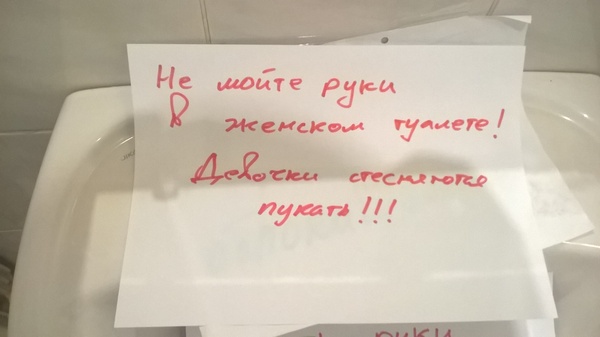 Не мойте руки
В женском туалете!
Девочки стесняются
пукать!!!
руки